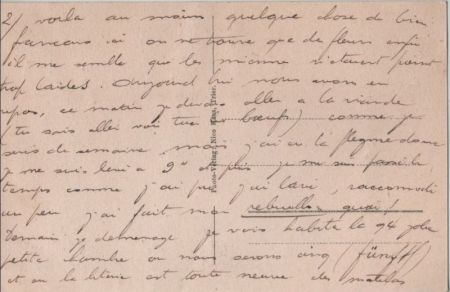 2/ voila au moins quelque chose de bien
francais ici on ne trouve que des fleurs enfin
il me semble que les miennes n'etaient pas
trop laides. Aujourd hui nous avons eu
repos, ce matin je devais aller a la viande
(tu sais aller voir tuer les bœufs) comme je
suis de semaine mais j'ai eu la flegme donc
je me suis levé a 9h
temps comme j'ai pu, j'ai lavé, raccomodé
un peu j'ai fait mon
Demain je demenage je vais habité la 94 jolie
petite chambre ou nous serons cinq (fünf)
et ou la literie est toute neuve des matelas
Photo-Verlag, Nico Haas, Trier.